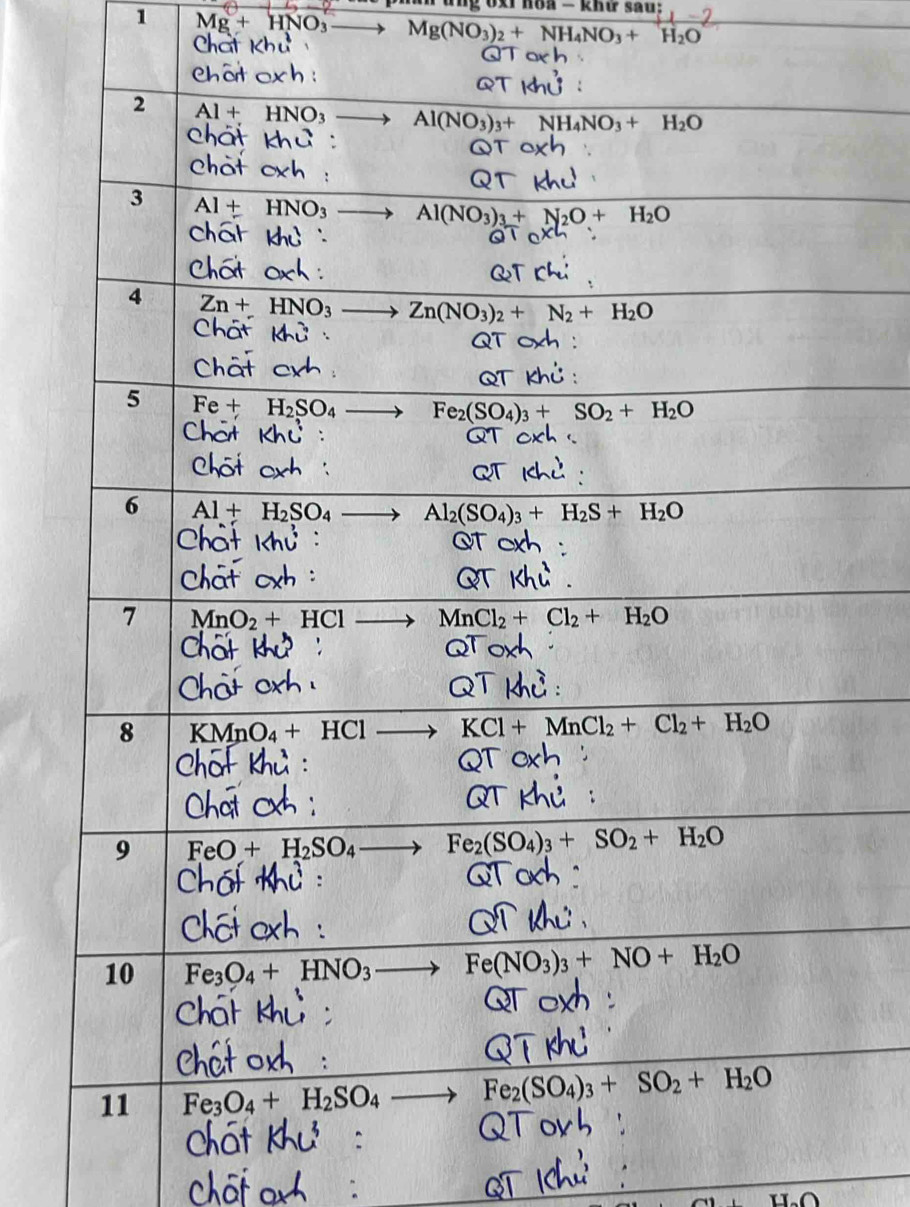 hóa – khử sau:
0 +1 +5 -2 +1 -2
1 Mg + HNO₃ ⟶ Mg(NO₃)₂ + NH₄NO₃ + H₂O
Chất khử: QT oxh:
chất oxh: QT khử:
2 Al + HNO₃ ⟶ Al(NO₃)₃+ NH₄NO₃ + H₂O
chất khử: QT oxh:
chất oxh: QT khử:
3 Al + HNO₃ ⟶ Al(NO₃)₃ + N₂O + H₂O
chất khử: QT oxh:
chất oxh: QT khử:
4 Zn + HNO₃ ⟶ Zn(NO₃)₂ + N₂ + H₂O
Chất khử: QT oxh:
Chất oxh: QT khử:
5 Fe + H₂SO₄ ⟶ Fe₂(SO₄)₃ + SO₂ + H₂O
Chất khử: QT oxh:
Chất oxh: QT khử:
6 Al + H₂SO₄ ⟶ Al₂(SO₄)₃ + H₂S + H₂O
Chất khử: QT oxh:
Chất oxh: QT khử:
7 MnO₂ + HCl ⟶ MnCl₂ + Cl₂ + H₂O
Chất khử: QT oxh:
Chất oxh: QT khử:
8 KMnO₄ + HCl ⟶ KCl + MnCl₂ + Cl₂ + H₂O
Chất khử: QT oxh:
Chất oxh: QT khử:
9 FeO + H₂SO₄ ⟶ Fe₂(SO₄)₃ + SO₂ + H₂O
Chất khử: QT oxh:
Chất oxh: QT khử:
10 Fe₃O₄ + HNO₃ ⟶ Fe(NO₃)₃ + NO + H₂O
Chất khử: QT oxh:
Chất oxh: QT khử
11 Fe₃O₄ + H₂SO₄ ⟶ Fe₂(SO₄)₃ + SO₂ + H₂O
Chất khử: QT oxh:
Chất oxh: QT khử:
H₂O